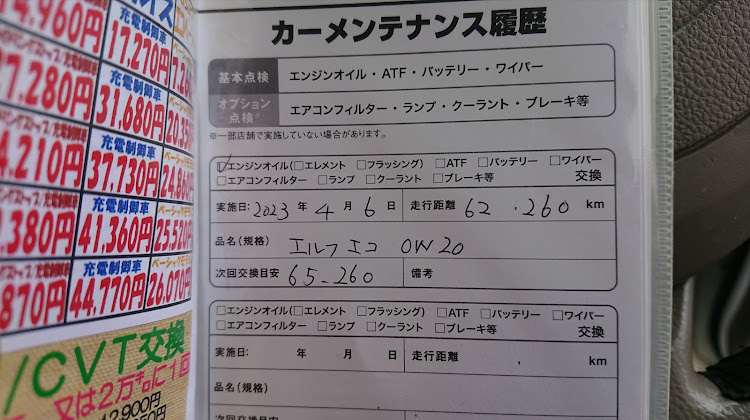 4.960円
充電制御車
17,270円
7.280円
充電制御車
31,680円
20,35
4.210円
充電制御車
37,730円
24,860
.380円
充電制御車
41,360円
25,520
870円
充電制御車
44,770円
26,070
/CVT交換
又は2万㌔に1回
カーメンテナンス履歴
基本点検 エンジンオイル・ATF・バッテリー・ワイパー
オプション点検 エアコンフィルター・ランプ・クーラント・ブレーキ等
※一部店舗で実施していない場合があります。
☑エンジンオイル(□エレメント □フラッシング) □ATF □バッテリー □ワイパー
□エアコンフィルター □ランプ □クーラント □ブレーキ等 交換
実施日: 2023 年 4 月 6 日 走行距離 62.260 km
品名(規格) エルフエコ 0W20
次回交換目安 65-260 備考
□エンジンオイル(□エレメント □フラッシング) □ATF □バッテリー □ワイパー
□エアコンフィルター □ランプ □クーラント □ブレーキ等 交換
実施日: 年 月 日 走行距離 . km
品名(規格)
次回交換目安